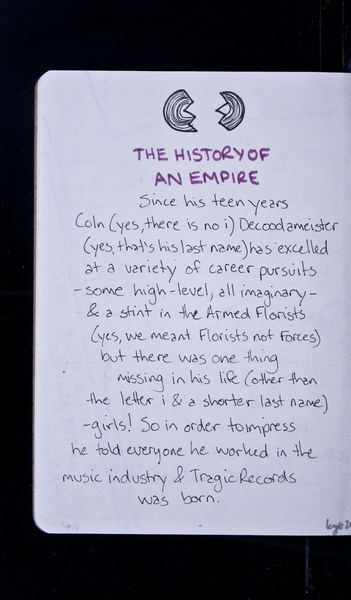 THE HISTORY OF
AN EMPIRE
Since his teen years
Coln (yes, there is no i) Decoodameister
(yes, that's his last name) has excelled
at a variety of career pursuits
-some high-level, all imaginary-
& a stint in the Armed Florists
(yes, we meant Florists not Forces)
but there was one thing
missing in his life (other than
the letter i & a shorter last name)
-girls! So in order to impress
he told everyone he worked in the
music industry & Tragic Records
was born.